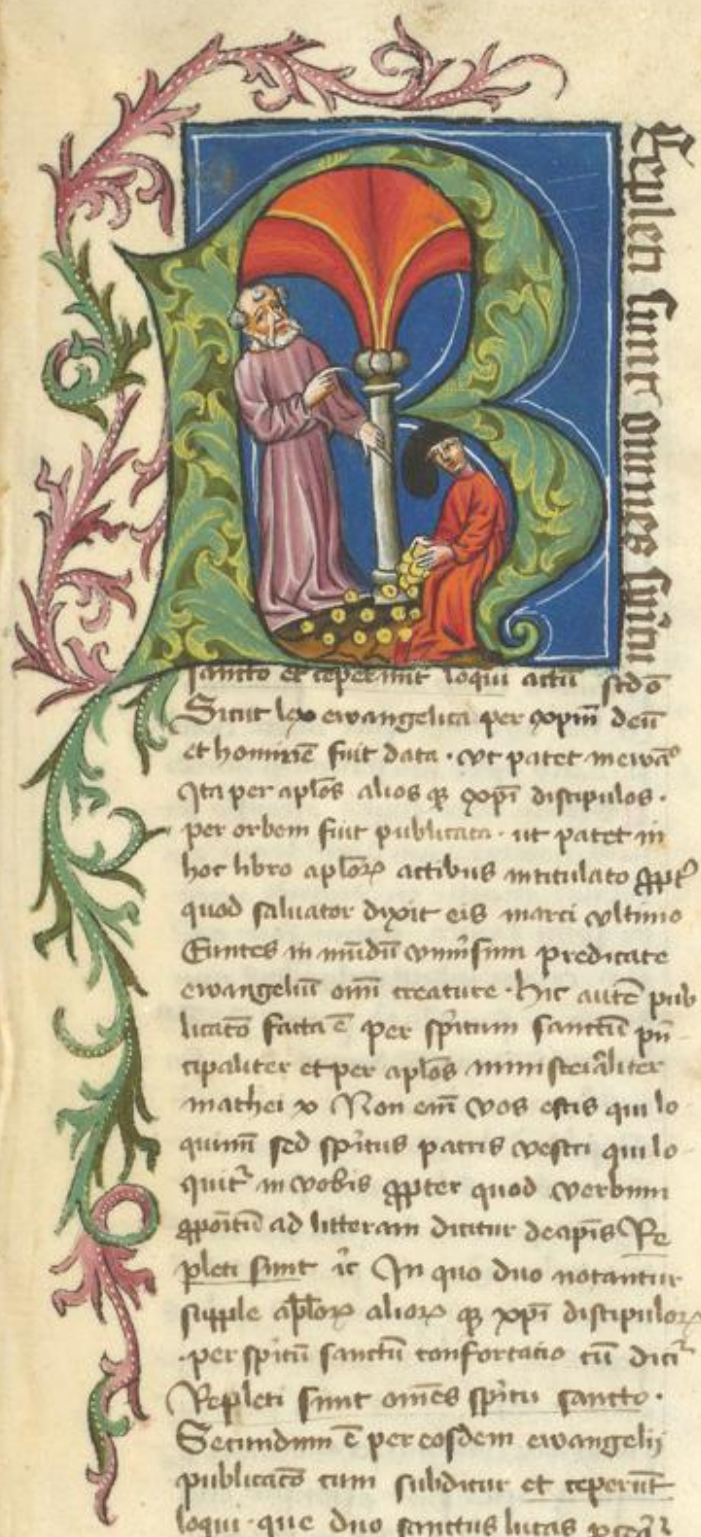 Repleti sunt omnes spiritu
sancto et ceperunt loqui actu scdo
Sicut lex ewangelica per xpm deu
et homine fuit data · vt patet in ewa
Ita per aplos alios qz xpi discipulos ·
per orbem fuit publicata · ut patet in
hoc libro aplorum actibus intitulato ppt
quod saluator dyxit eis marci vltimo
Euntes in mudu vniuersum predicate
ewangeliu omi creature · hic aute pub
licaco facta e per spiritum sanctu prin
cipaliter et per aplos ministerialiter
mathei x Non em vos estis qui lo
quimi sed spiritus patris vestri qui lo
quitur in vobis propter quod verbum
propositu ad litteram dicitur de apis Re
pleti sunt ic In quo duo notantur
supple aplorum aliorum qz xpi discipulorum
· per spiritu sanctu confortacio cu dicitur
Repleti sunt omes spiritu sancto ·
Secundum e per eosdem ewangelij
publicaco cum subditur et ceperunt
loqui · que duo sanctus lucas